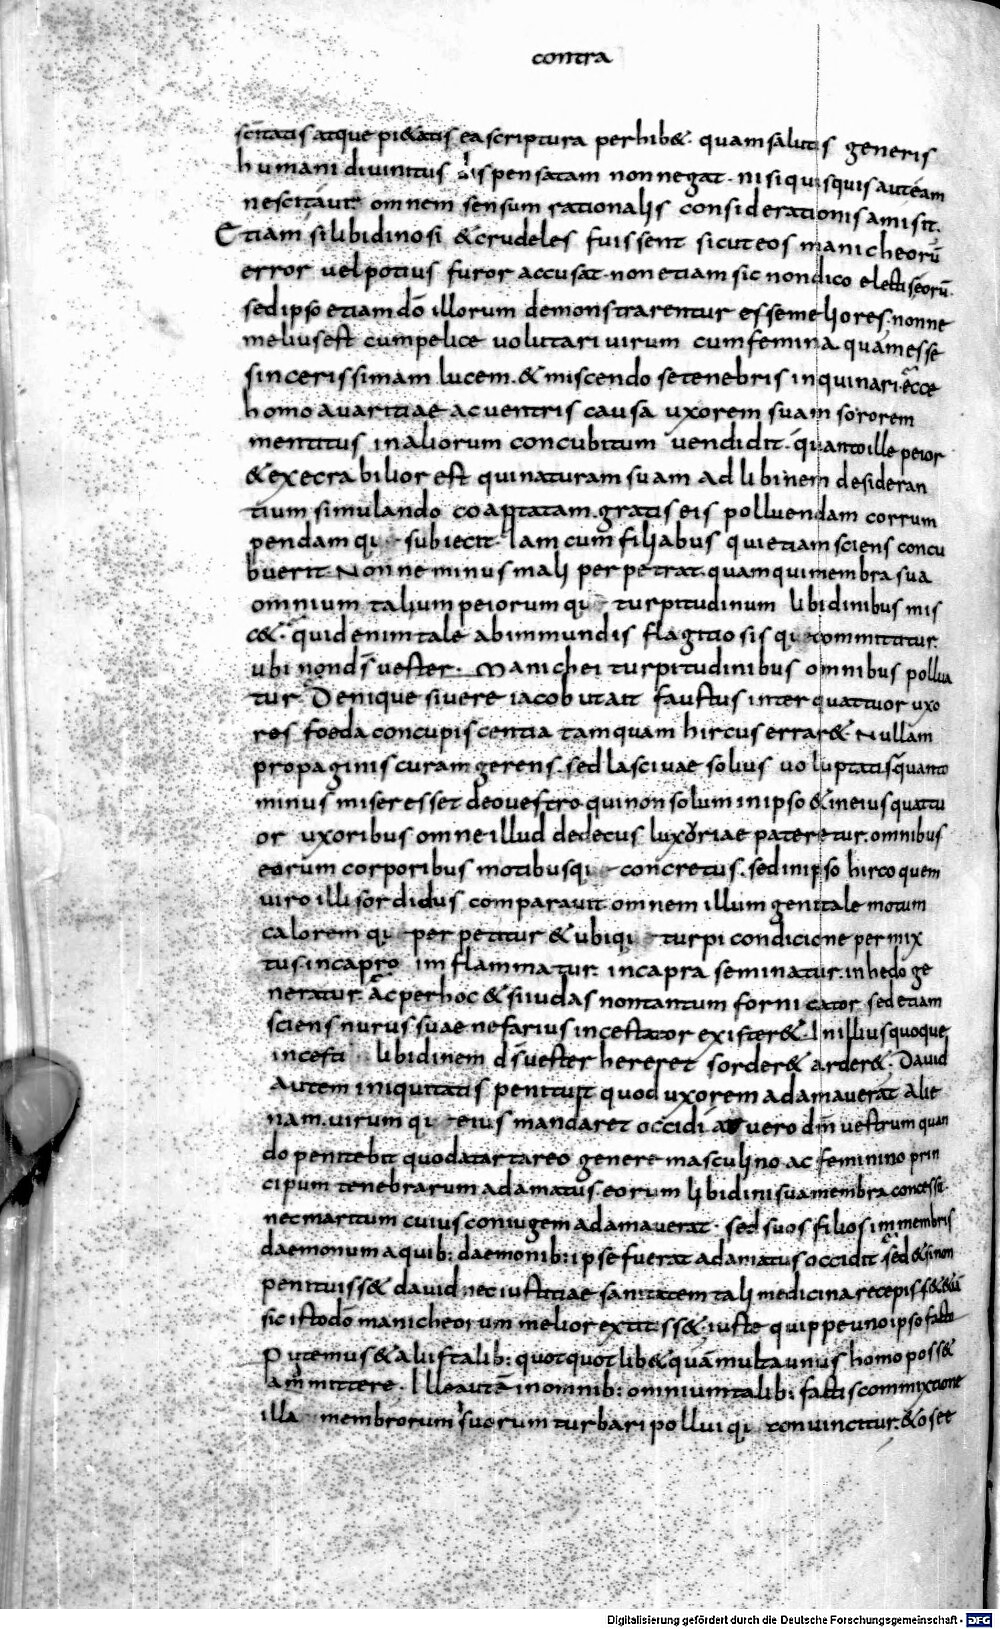 contra
scitatis atque pi&atis ea scriptura perhib&. quam salutis generis
humani divinitus dispensatam non negat. nisi quisquis aut eam
nescit aut omnem sensum rationalis considerationis amisit.
Etiam si libidinosi & crudeles fuissent sicut eos manicheorū
error vel potius furor accusat. non etiam sic non dico electis eorū
sed ipso etiam dō illorum demonstrarentur esse meliores. nonne
melius est cum pelice volutari virum cum femina quam esse
sincerissimam lucem. & miscendo se tenebris inquinari. ecce
homo avaritiae ac ventris causa uxorem suam sororem
mentitus in aliorum concubitum vendidit. quanto ille peior
& execrabilior est qui naturam suam ad libinem desideran
tium simulando coaptatam. gratis eis polluendam corrum
pendam qi subiecit. Iam cum filiabus qui etiam sciens concu
buerit. Nonne minus mali perpetrat. quam qui membra sua
omnium talium peiorum qi turpitudinum libidinibus mis
c&. quid enim tale ab immundis flagitiosis qi committitur.
ubi non ds vester. Manichei turpitudinibus omnibus pollua
tur. Denique si vere iacob ut ait faustus inter quattuor uxo
res foeda concupiscentia tamquam hircus errar& Nullam
propaginis curam gerens. sed lascivae solius voluptatis. quanto
minus miser esset deo vestro qui non solum in ipso & in eius quattu
or uxoribus omne illud dedecus luxoriae pateretur. omnibus
eorum corporibus motibusqi concretus. sed in ipso hirco quem
viro illi sordidus comparavit. omnem illum genitale motum
calorem qi perpetitur & ubiqi turpi condicione permix
tus. in capro imflammatur. in capra seminatur. in hedo ge
neratur. Ac per hoc & si iudas non tantum fornicator sed etiam
sciens nurus suae nefarius incestator exister&. In illius quoque
incesti libidinem ds vester hereret sorder& arder&. David
autem iniquitatis penituit quod uxorem adamaverat alie
nam. virum qi eius mandaret occidi. vero dm vestrum quan
do penitebit quod a tartareo genere masculino ac feminino prin
cipum tenebrarum adamatus. eorum libidini sua membra concessit.
nec maritum cuius coniugem adamaverat. sed suos filios im membris
daemonum a quib: daemonib: ipse fuerat adamatus occidit. sed & si non
penituiss& david. nec iustitiae sanitatem tali medicina recepiss& & ciā
sic isto dō manicheorum melior extitiss&. iuste quippe uno ipso facto
Putemus & aliis talib: quotquot lib& quam multa unus homo poss&
lammittere. Ille autē in omnib: omnium talib: factis commixtione
illa membrorum suorum turbari pollui qi convincitur. & oset